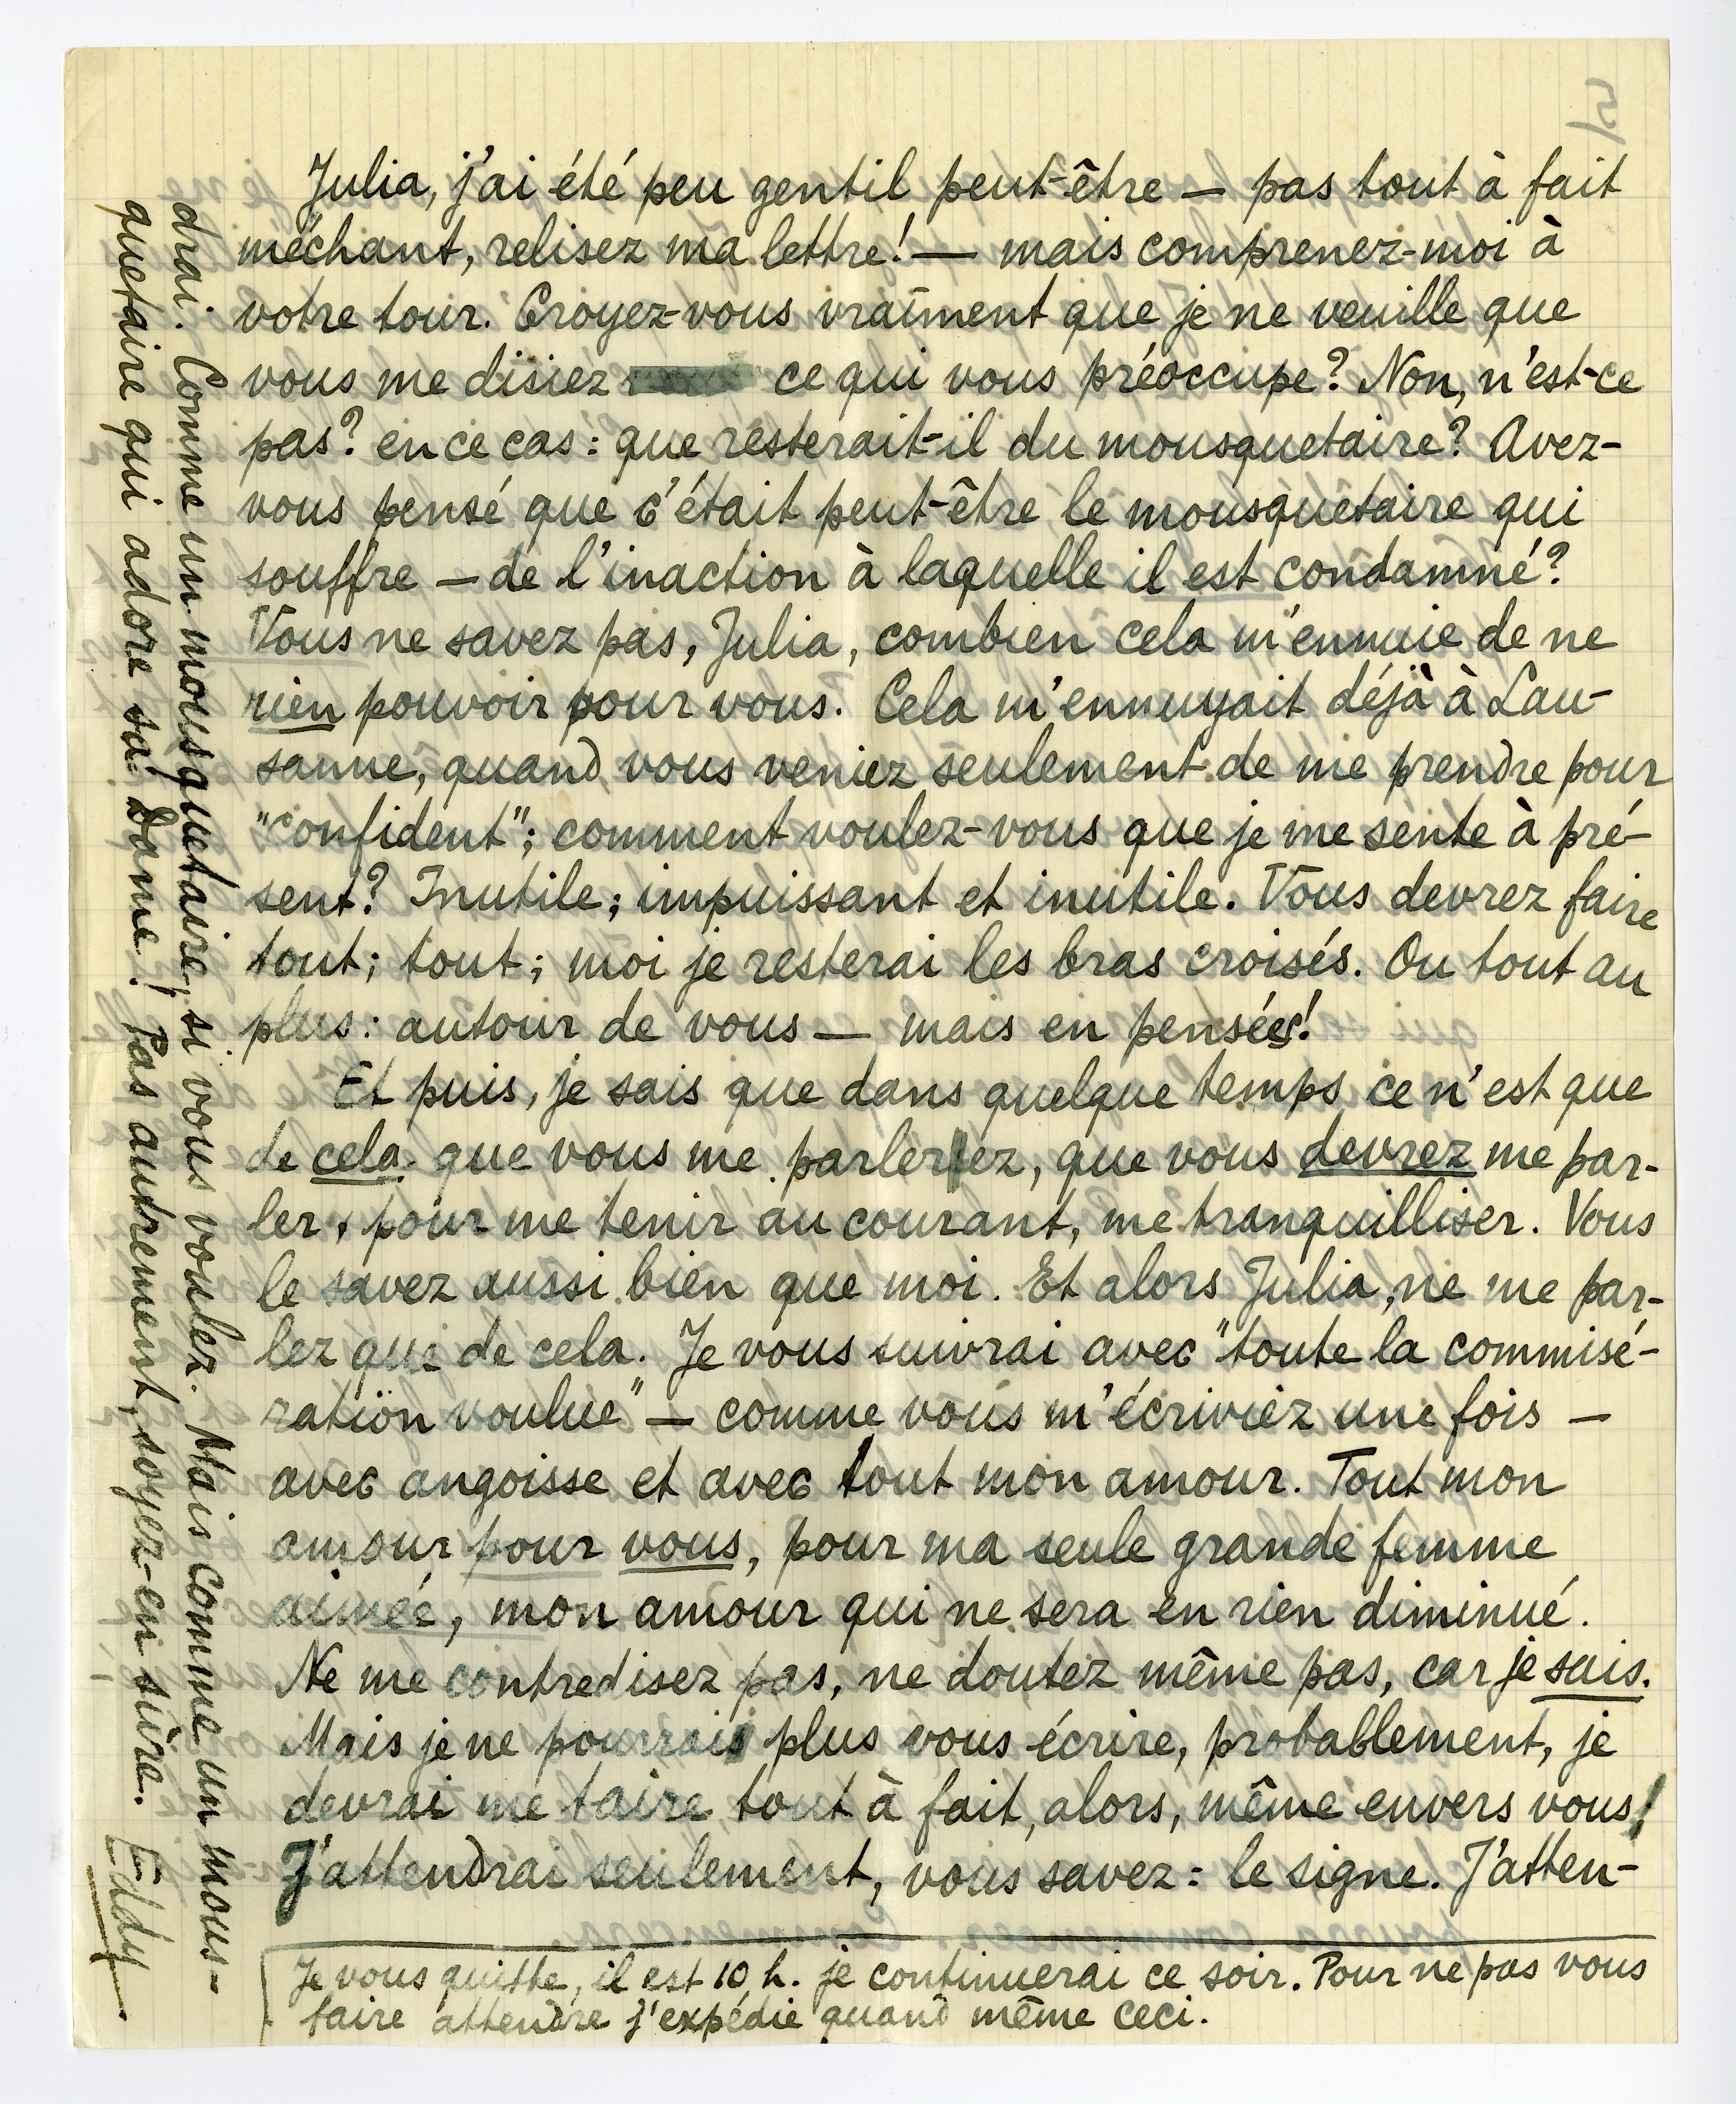 Julia, j'ai été peu gentil peut-être — pas tout à fait
méchant, relisez ma lettre! — mais comprenez-moi à
votre tour. Croyez-vous vraiment que je ne veuille que
vous me disiez ce qui vous préoccupe? Non, n'est-ce
pas? en ce cas: que resterait-il du mousquetaire? Avez-
vous pensé que c'était peut-être le mousquetaire qui
souffre — de l'inaction à laquelle il est condamné?
Vous ne savez pas, Julia, combien cela m'ennuie de ne
rien pouvoir pour vous. Cela m'ennuyait déjà à Lau-
sanne, quand vous veniez seulement de me prendre pour
"confident"; comment voulez-vous que je me sente à pré-
sent? Inutile; impuissant et inutile. Vous devrez faire
tout; tout; moi je resterai les bras croisés. Ou tout au
plus: autour de vous — mais en pensées!
Et puis, je sais que dans quelque temps ce n'est que
de cela que vous me parlerez, que vous devrez me par-
ler, pour me tenir au courant, me tranquilliser. Vous
le savez aussi bien que moi. Et alors Julia, ne me par-
lez que de cela. Je vous suivrai avec "toute la commisé-
ration voulue" — comme vous m'écriviez une fois —
avec angoisse et avec tout mon amour. Tout mon
amour pour vous, pour ma seule grande femme
aimée, mon amour qui ne sera en rien diminué.
Ne me contredisez pas, ne doutez même pas, car je sais.
Mais je ne pourrai plus vous écrire, probablement, je
devrai me taire tout à fait, alors, même envers vous!
J'attendrai seulement, vous savez: le signe. J'atten-
drai. Comme un mousquetaire, si vous voulez. Mais comme un mous-
quetaire qui adore sa Dame! Pas autrement, soyez-en sûre.
Eddy
Je vous quitte, il est 10 h. je continuerai ce soir. Pour ne pas vous
faire attendre j'expédie quand même ceci.